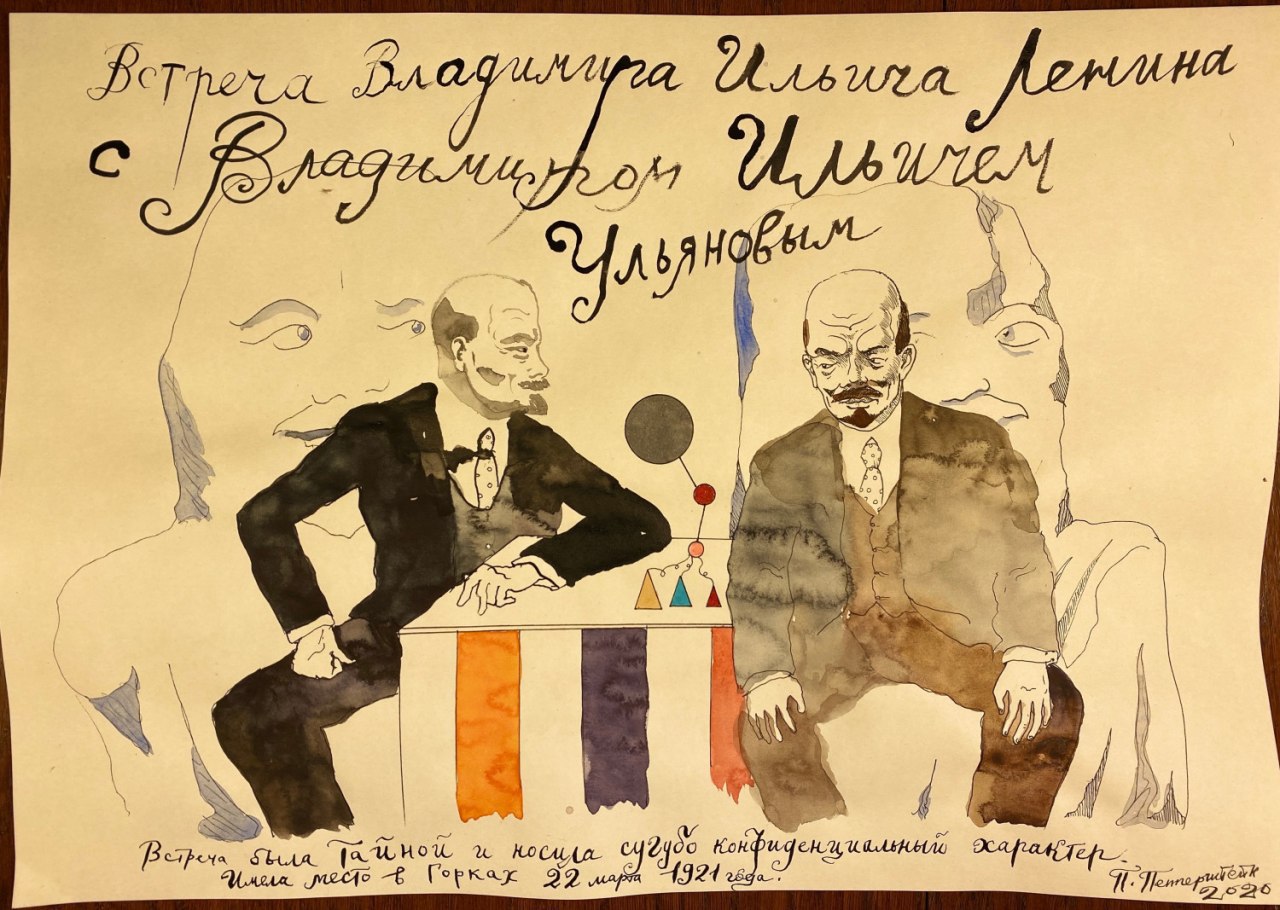 Встреча Владимира Ильича Ленина
с Владимиром Ильичем
Ульяновым
Встреча была Тайной и носила сугубо конфиденциальный характер.
Имела место в Горках 22 марта 1921 года.
П. Пепперштейн
2020